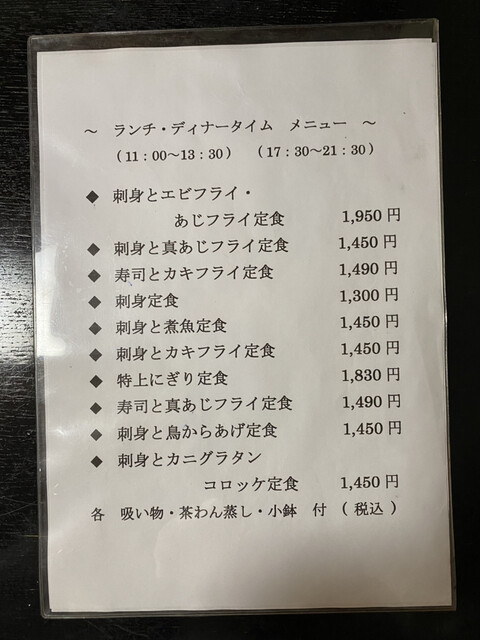 ～ ランチ・ディナータイム メニュー ～
（11：00～13：30） （17：30～21：30）
◆ 刺身とエビフライ・
あじフライ定食 1,950 円
◆ 刺身と真あじフライ定食 1,450 円
◆ 寿司とカキフライ定食 1,490 円
◆ 刺身定食 1,300 円
◆ 刺身と煮魚定食 1,450 円
◆ 刺身とカキフライ定食 1,450 円
◆ 特上にぎり定食 1,830 円
◆ 寿司と真あじフライ定食 1,490 円
◆ 刺身と鳥からあげ定食 1,450 円
◆ 刺身とカニグラタン
コロッケ定食 1,450 円
各 吸い物・茶わん蒸し・小鉢 付 （ 税込 ）